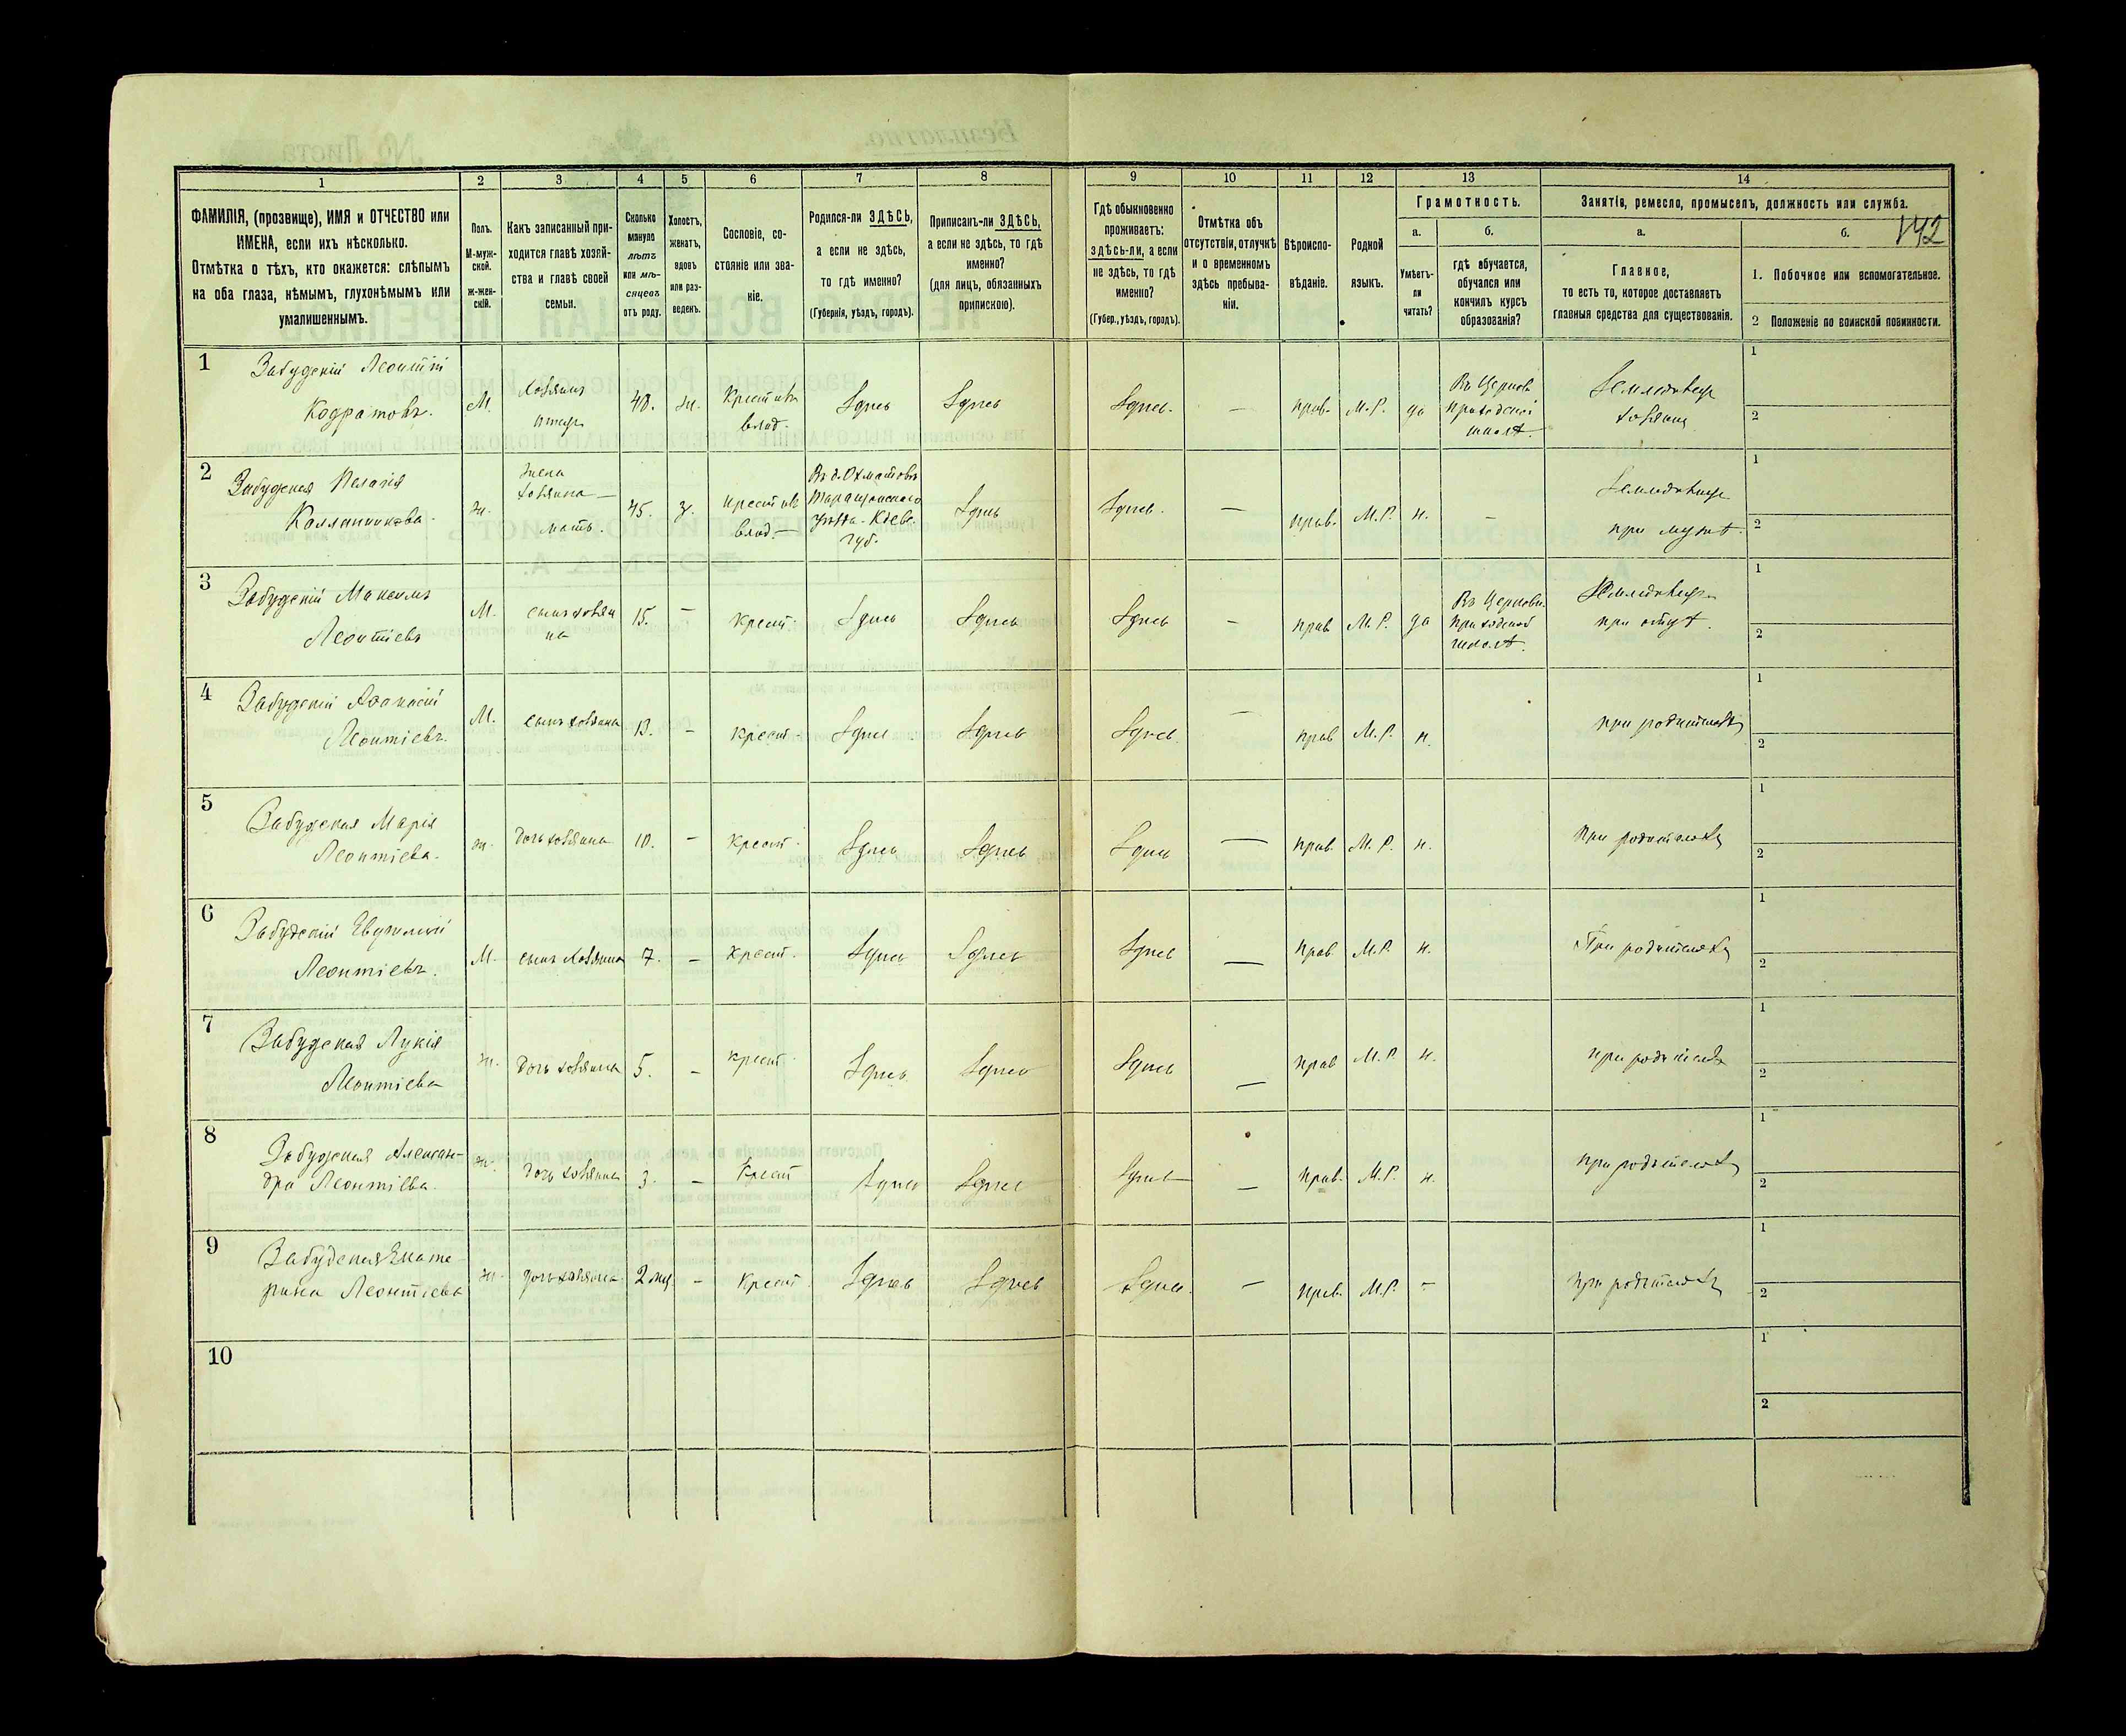 1 2 3 4 5 6 7 8 9 10 11 12 13 14
ФАМИЛІЯ, (прозвище), ИМЯ и ОТЧЕСТВО или
ИМЕНА, если ихъ нѣсколько.
Отмѣтка о тѣхъ, кто окажется: слѣпымъ
на оба глаза, нѣмымъ, глухонѣмымъ или
умалишеннымъ.
Полъ.
М-муж-
ской.
ж-жен-
скій.
Какъ записанный при-
ходится главѣ хозяй-
ства и главѣ своей
семьи.
Сколько
минуло
лѣтъ
или мѣ-
сяцевъ
отъ роду.
Холостъ,
женатъ,
вдовъ
или раз-
веденъ.
Сословіе, со-
стояніе или зва-
ніе.
Родился-ли ЗДѢСЬ,
а если не здѣсь,
то гдѣ именно?
(Губернія, уѣздъ, городъ).
Приписанъ-ли ЗДѢСЬ,
а если не здѣсь, то гдѣ
именно?
(для лицъ, обязанныхъ
припискою).
Гдѣ обыкновенно
проживаетъ:
здѣсь-ли, а если
не здѣсь, то гдѣ
именно?
(Губер., уѣздъ, городъ).
Отмѣтка объ
отсутствіи, отлучкѣ
и о временномъ
здѣсь пребыва-
ніи.
Вѣроиспо-
вѣданіе.
Родной
языкъ.
Грамотность.
а.
Умѣетъ-
ли
читать?
б.
гдѣ обучается,
обучался или
кончилъ курсъ
образованія?
Занятія, ремесло, промыселъ, должность или служба.
а.
Главное,
то есть то, которое доставляетъ
главныя средства для существованія.
б. 142
1. Побочное или вспомогательное.
2 Положеніе по воинской повинности.
1 Забудскій Леонтій
Кодратовъ.
М.
Хозяинъ
отецъ
40. ж.
Крест. изъ
влад.
Здѣсь Здѣсь Здѣсь. — прав. М.Р. да
Въ Церков.
приходской
школѣ.
Земледѣлецъ
хозяинъ
1
2
2 Забудская Пелагія
Каллиникова.
ж.
жена
хозяина —
мать.
45. з.
Крест. изъ
влад. —
Въ с. Охматовъ
Таращанскаго
уѣзда. Кіев.
губ.
Здѣсь Здѣсь. — прав. М.Р. н. —
Земледѣлецъ
при мужѣ.
1
2
3 Забудскій Максимъ
Леонтіевъ
М.
сынъ хозяи
на
15. — крест. Здѣсь Здѣсь Здѣсь — прав М.Р. да
Въ Церковн.
приходской
школѣ.
Земледѣлецъ
при отцѣ.
1
2
4 Забудскій Аѳанасій
Леонтіевъ.
М. сынъ хозяина 13. — крест. Здѣсь Здѣсь Здѣсь — прав М.Р. н. при родителяхъ
1
2
5 Забудская Марія
Леонтіева.
ж. дочь хозяина 10. — крест. Здѣсь Здѣсь Здѣсь — прав. М.Р. н. при родителяхъ
1
2
6 Забудскій Евѳимій
Леонтіевъ.
М. сынъ хозяина 7. — крест. Здѣсь Здѣсь Здѣсь — прав. М.Р. н. При родителяхъ
1
2
7 Забудская Лукія
Леонтіева
ж. дочь хозяина 5. — крест. Здѣсь Здѣсь Здѣсь — прав М.Р. н. при родителяхъ
1
2
8 Забудская Алексан-
дра Леонтіева.
ж. дочь хозяина 3. — Крест Здѣсь Здѣсь Здѣсь — прав. М.Р. н. при родителяхъ
1
2
9 Забудская Екате
рина Леонтіева
ж. дочь хозяина 2 мц. — крест. Здѣсь Здѣсь Здѣсь. — прав. М.Р. — при родителяхъ
1
2
10
1
2